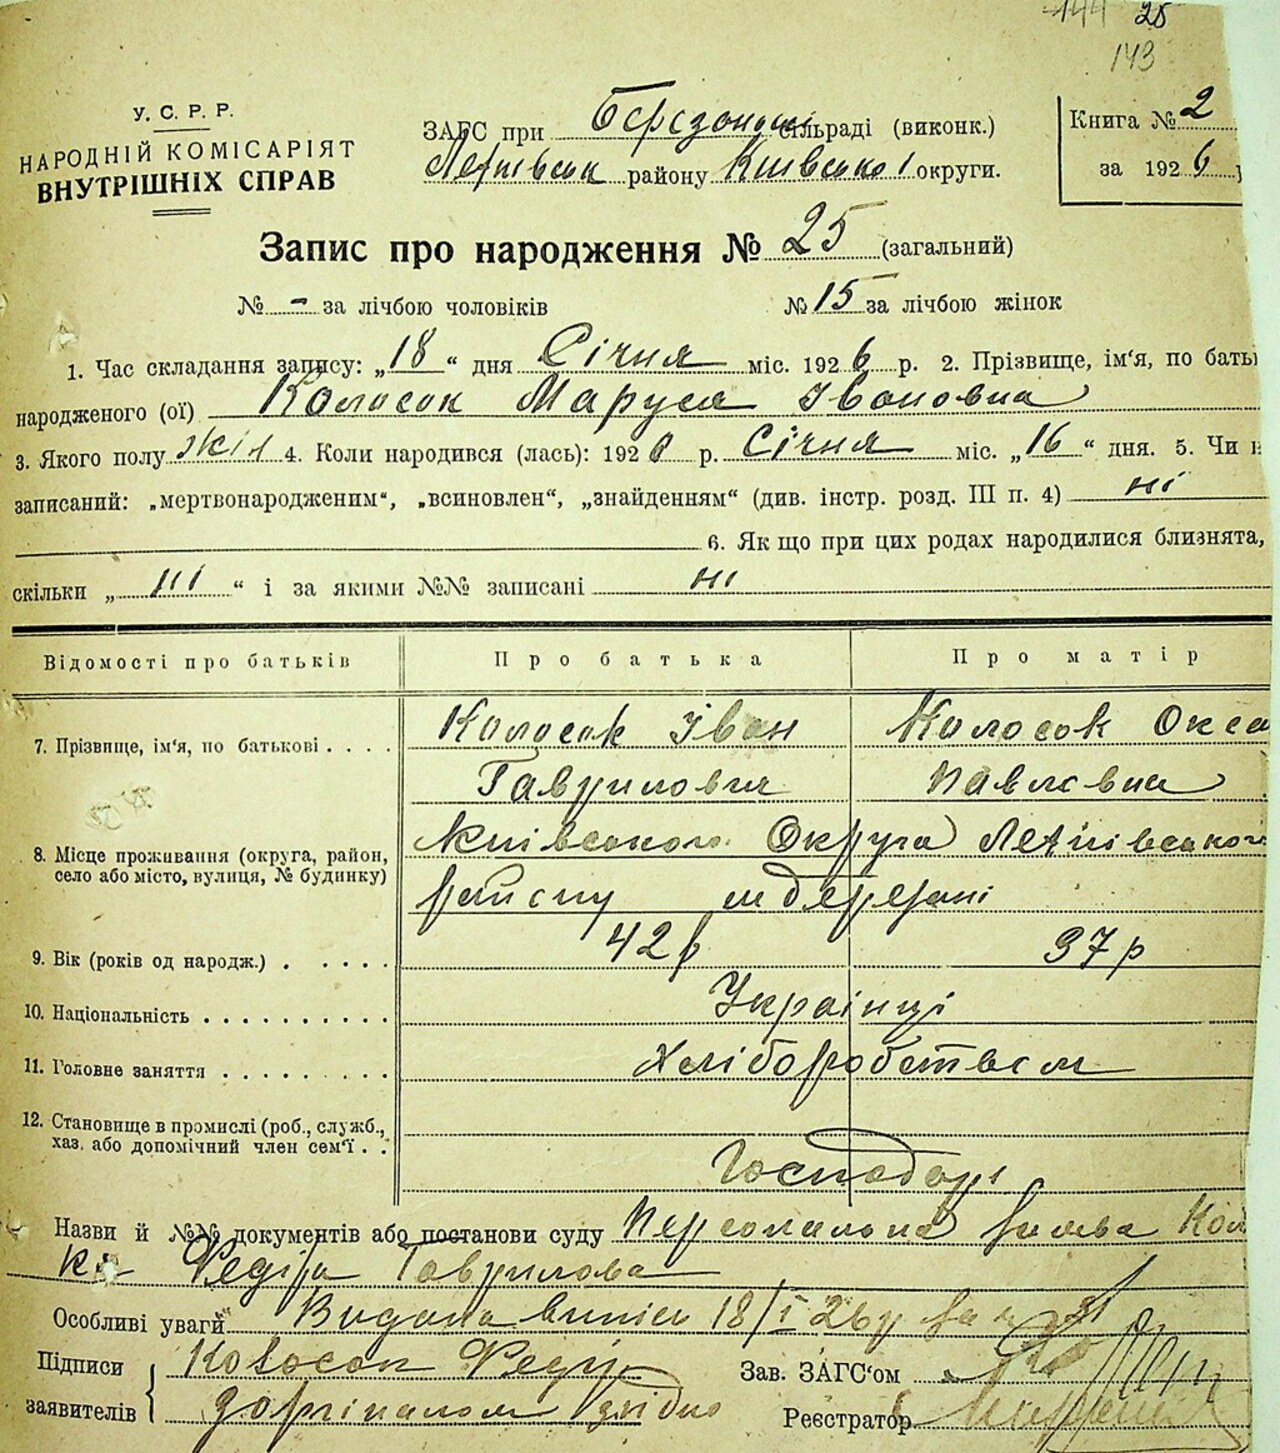 144 25
143
У. С. Р. Р.
НАРОДНІЙ КОМІСАРІЯТ
ВНУТРІШНІХ СПРАВ
ЗАГС при сільраді (виконк.)
району Київської округи.
Книга № 2
за 1926
Запис про народження № 25 (загальний)
№ - за лічбою чоловіків № 15 за лічбою жінок
1. Час складання запису: „18“ дня Січня міс. 1926 р. 2. Прізвище, ім‘я, по бать
народженого (ої) Колосок Маруся Івановна
3. Якого полу жін 4. Коли народився (лась): 1926 р. Січня міс. „16“ дня. 5. Чи н
записаний: „мертвонародженим“, „всиновлен“, „знайденням“ (див. інстр. розд. III п. 4) ні
6. Як що при цих родах народилися близнята,
скільки „ні“ і за якими №№ записані ні
Відомості про батьків Про батька Про матір
7. Прізвище, ім‘я, по батькові . . . . Колосок Іван Колосок Окса
Гаврилович Павловна
8. Місце проживання (округа, район,
село або місто, вулиця, № будинку)
Київського Округа
району
9. Вік (років од народж.) . . . . . 42 р 37 р
10. Національність . . . . . . . . . . Українці
11. Головне заняття . . . . . . . . . Хліборобством
12. Становище в промислі (роб., служб.,
хаз. або допомічний член сем‘ї . .
Господарі
Назви й №№ документів або постанови суду Персональна заява Кол
ка Федіра Гаврилова
Особливі уваги Видана 18/I 26
Підписи Колосок Федір Зав. ЗАГС‘ом
заявителів з оргіналом згідно Реєстратор